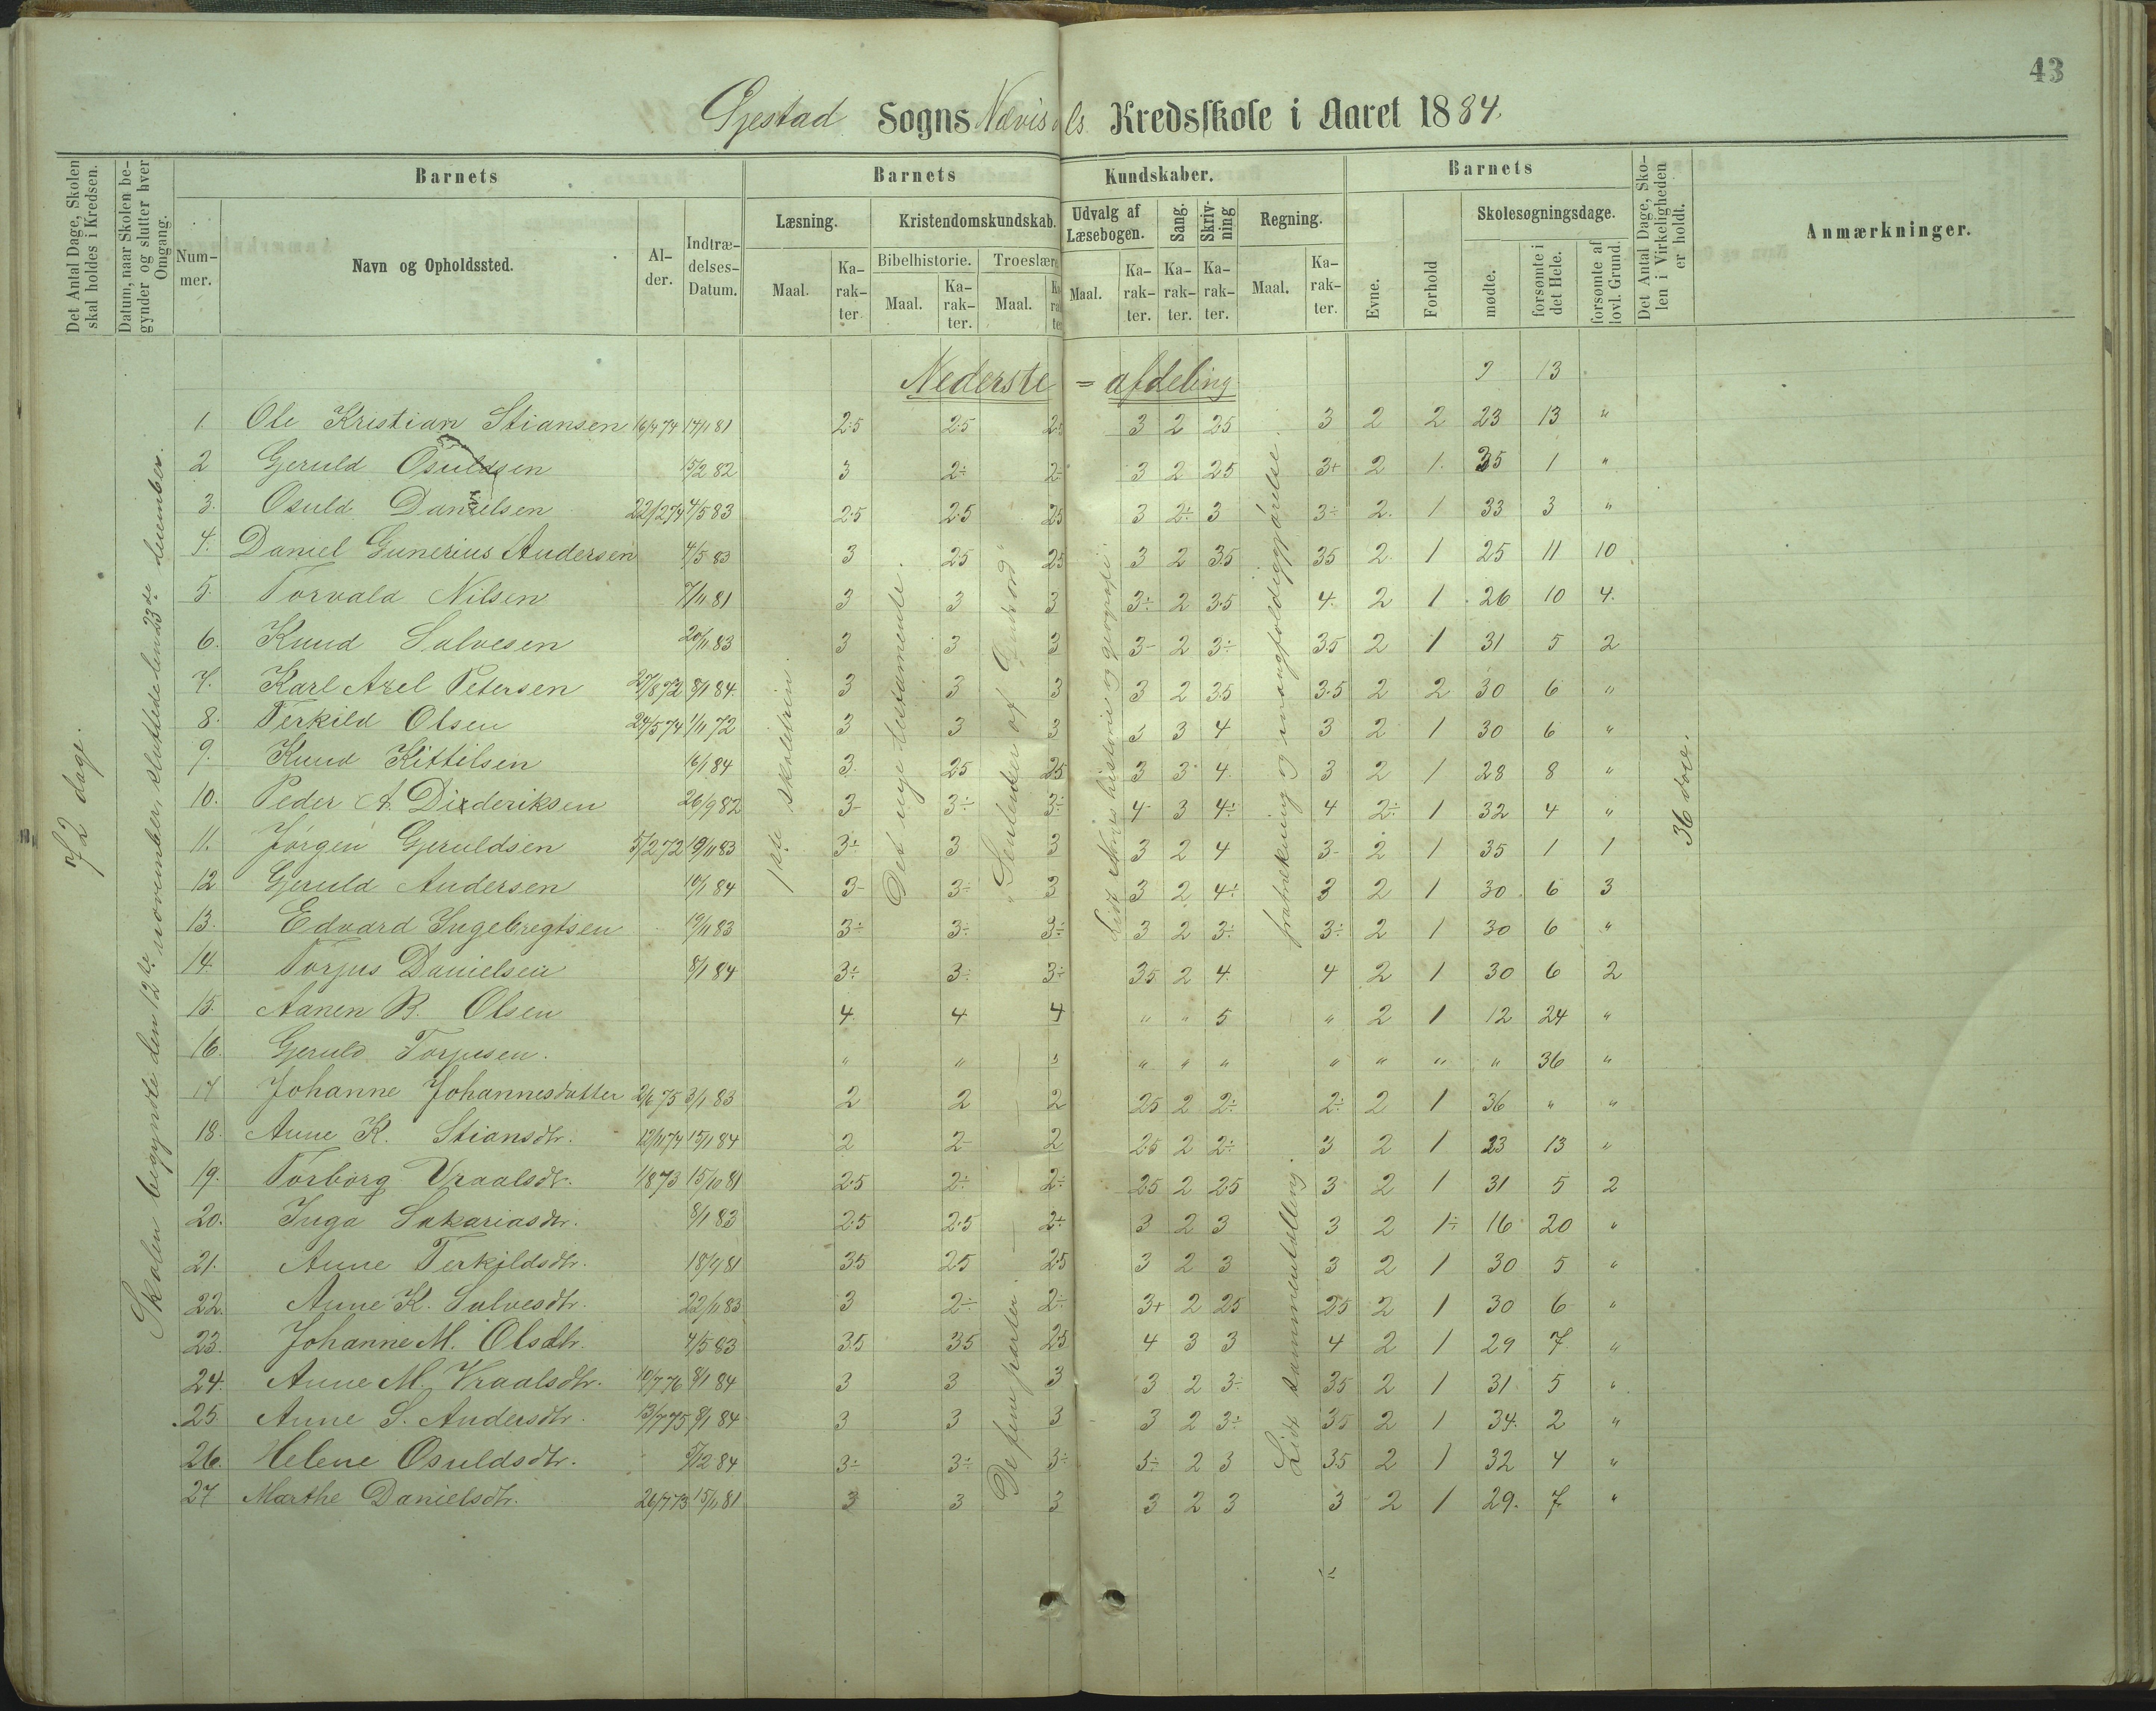 43
Gjestad Sogns Nævisdals Kredsskole i Aaret 1884.
Det Antal Dage, Skolen skal holdes i Kredsen.
Datum, naar Skolen begynder og slutter hver Omgang.
Barnets
Barnets Kundskaber.
Barnets
Det Antal Dage, Skolen i Virkeligheden er holdt.
Anmærkninger.
Nummer.
Navn og Opholdssted.
Alder.
Indtrædelses-Datum.
Læsning.
Kristendomskundskab.
Udvalg af Læsebogen.
Sang.
Skrivning
Regning.
Evne.
Forhold
Skolesøgningsdage.
Bibelhistorie.
Troeslære
Maal.
Karakter.
Maal.
Karakter.
Maal.
Karakter
Maal.
Karakter.
Karakter.
Karakter.
Maal.
Karakter.
mødte.
forsømte i det Hele.
forsømte af lovl. Grund.
72 dage.
Skolen begyndte den 12te november, sluttede den 23de desember.
1ste skoletrin.
Det nye testamente.
De fem parter
Lidt Norges historie og geografi.
fratrekning og mangfoldiggjørelse.
Lidt sammentælling.
36 dage.
Nederste = afdeling
13
1. Ole Kristian Stiansen 16/4 74 14/11 81 2.5 2.5 2.5 3 2 2.5 3 2 2 23 13 "
2 Gjeruld Osuldsen 15/2 82 3 2÷ 2÷ 3 2 2.5 3+ 2 1. 35 1 "
3. Osuld Danielsen 22/12 74 4/5 83 2.5 2.5 2.5 3 2÷ 3 3÷ 2. 1 33 3 "
4. Daniel Gunerius Andersen 4/5 83 3 2.5 2.5 3 2 3.5 3.5 2 1 25 11 10
5. Torvald Nilsen 7/11 81 3 3 3 3÷ 2 3.5 4. 2 1 26 10 4.
6. Knud Salvesen 20/11 83 3 3 3 3- 2 3÷ 3.5 2 1 31 5 2
7. Karl Axel Petersen 27/8 72 8/1 84 3 3 3 3 2 3.5 3.5 2 2 30 6 "
8. Terkild Olsen 24/5 74 1/11 72 3 3 3 3 3 4 3 2 1 30 6 "
9. Knud Kittilsen 16/1 84 3 2.5 2.5 3 3 4 3 2 1 28 8 "
10. Peder A. Diederiksen 26/9 82 3- 3÷ 3÷ 4- 3 4÷ 4 2÷ 1 32 4 "
11. Jørgen Gjeruldsen 5/2 72 19/11 83 3÷ 3 3 3 2 4 3- 2 1 35 1 1
12 Gjeruld Andersen 10/1 84 3- 3÷ 3 3 2 4÷ 3 2 1 30 6 3
13. Edvard Ingebregtsen 19/11 83 3÷ 3÷ 3÷ 3 2 3÷ 3÷ 2 1 30 6 "
14. Torjus Danielsen 8/1 84 3÷ 3÷ 3÷ 3.5 2 4 4 2 1 30 6 2
15. Aanen B. Olsen 4 4 4 " " 5 " 2 1 12 24 "
16. Gjeruld Torjusen. " " " " " " " " " " 36 "
17 Johanne Johannesdatter 2/6 75 3/1 83 2 2 2 2.5 2 2÷ 2÷ 2 1 36 " "
18. Anne K. Stiansdtr. 12/11 74 15/1 84 2 2- 2 2.5 2 2÷ 3 2 1 23 13 "
19. Torborg Vraalsdtr. 1/8 73 15/10 81 2.5 2÷ 2÷ 2.5 2 2.5 3 2 1 31 5 2
20. Inga Sakariasdtr. 8/1 83 2.5 2.5 2÷ 3 2 3 3 2 1÷ 16 20 "
21. Anne Terkildsdtr. 18/9 81 3.5 2.5 2.5 3 2 3 3 2 1 30 5 "
22. Anne K. Salvesdtr. 22/11 83 3 2÷ 2÷ 3+ 2 2.5 2.5 2 1 30 6 "
23. Johanne M. Olsdtr. 4/5 83 3.5 3.5 2.5 4 3 3 4 2 1 29 7 "
24. Anne M. Vraalsdtr. 10/7 76 8/1 84 3 3 3 3 2 3÷ 3.5 2 1 31 5 "
25. Anne S. Andersdtr. 13/7 75 8/1 84 3 3 3 3 2 3÷ 3.5 2 1 34. 2 "
26. Helene Osuldsdtr. 5/12 84 3÷ 3÷ 3÷ 3÷ 2 3 3.5 2 1 32 4 "
27 Marthe Danielsdtr. 26/7 73 15/11 81 3 3 3 3 2 3 3 2 1 29. 7 "